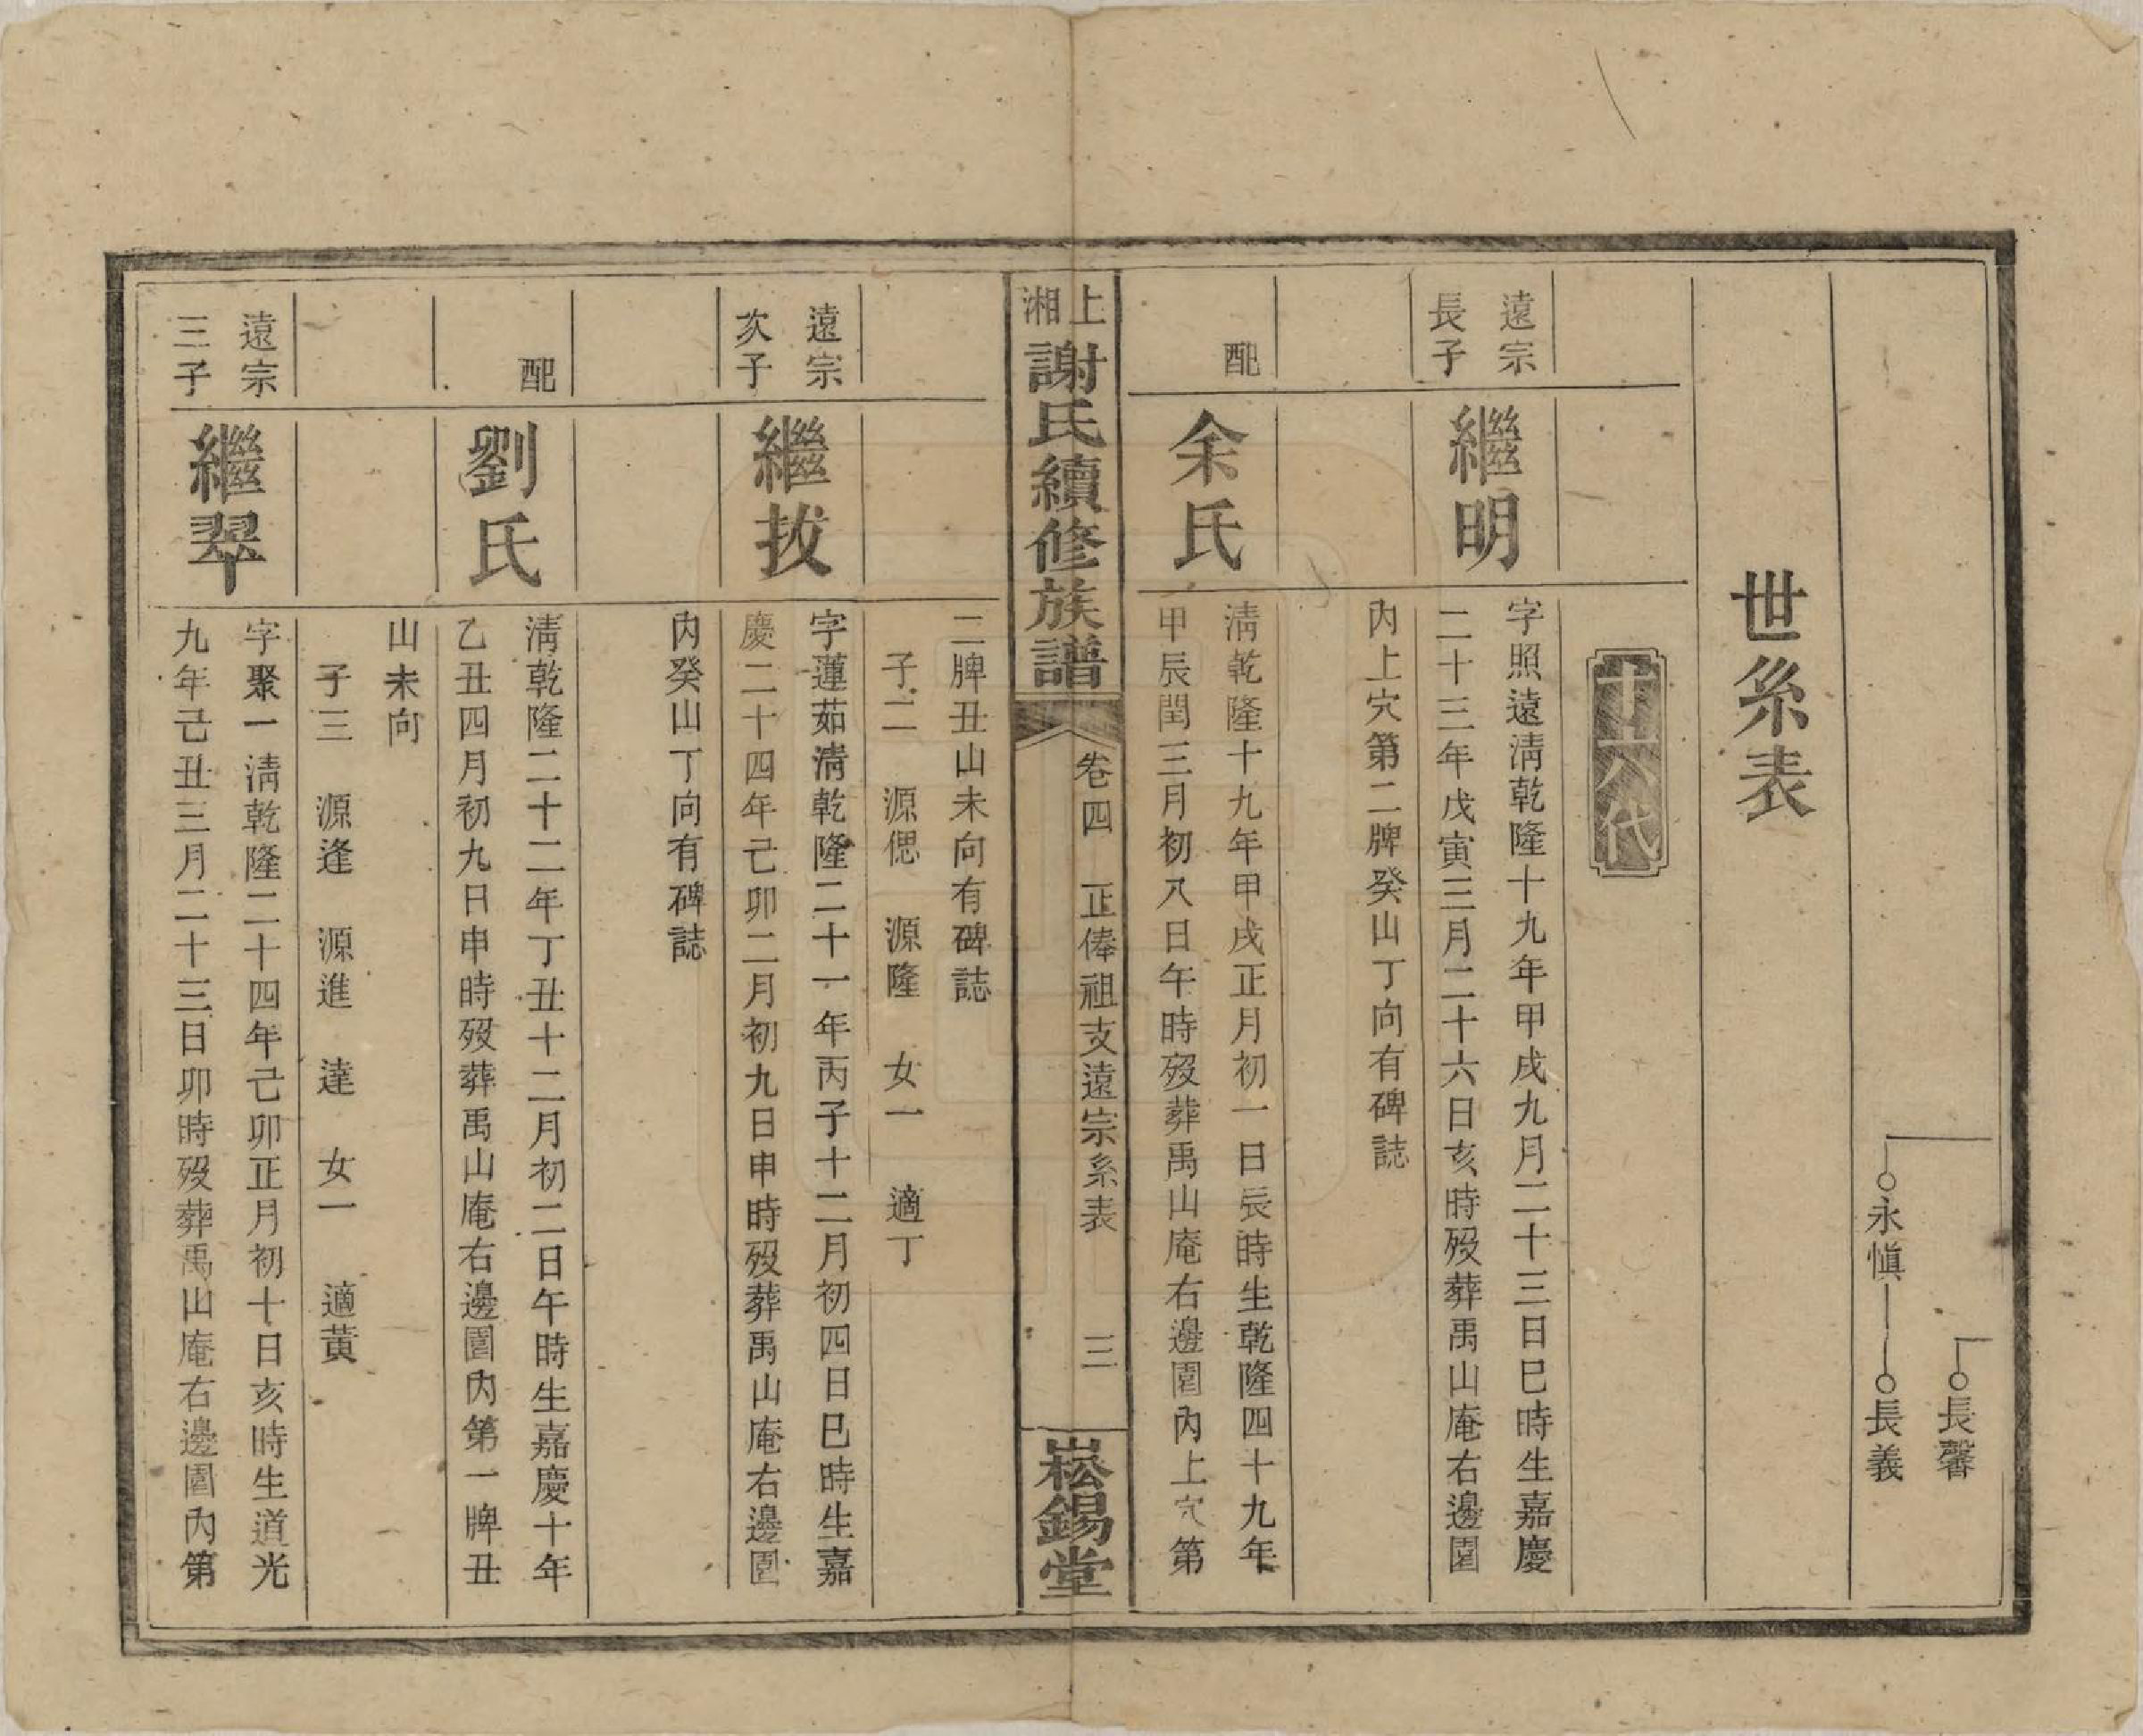 長馨
永慎 長義
世系表
十八代
遠宗
長子
繼明
字照遠淸乾隆十九年甲戌九月二十三日巳時生嘉慶
二十三年戊寅三月二十六日亥時歿葬禹山庵右邊園
內上穴第二牌癸山丁向有碑誌
配
余氏
淸乾隆十九年甲戌正月初一日辰時生乾隆四十九年
甲辰閏三月初八日午時歿葬禹山庵右邊園內上穴第
上湘
謝氏續修族譜
卷四 正俸祖支遠宗系表 三
崧錫堂
二牌丑山未向有碑誌
子二 源偲 源隆 女一 適丁
遠宗
次子
繼拔
字蓮茹淸乾隆二十一年丙子十二月初四日巳時生嘉
慶二十四年己卯二月初九日申時歿葬禹山庵右邊園
內癸山丁向有碑誌
配
劉氏
淸乾隆二十二年丁丑十二月初二日午時生嘉慶十年
乙丑四月初九日申時歿葬禹山庵右邊園內第一牌丑
山未向
子三 源逢 源進 達 女一 適黃
遠宗
三子
繼翠
字聚一淸乾隆二十四年己卯正月初十日亥時生道光
九年己丑三月二十三日卯時歿葬禹山庵右邊園內第